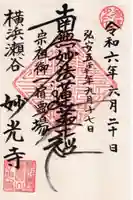 令和六年六月二十日
弘安五年九月十七日
南無妙法蓮華経
宗祖御宿霊場
横浜瀬谷
妙光寺